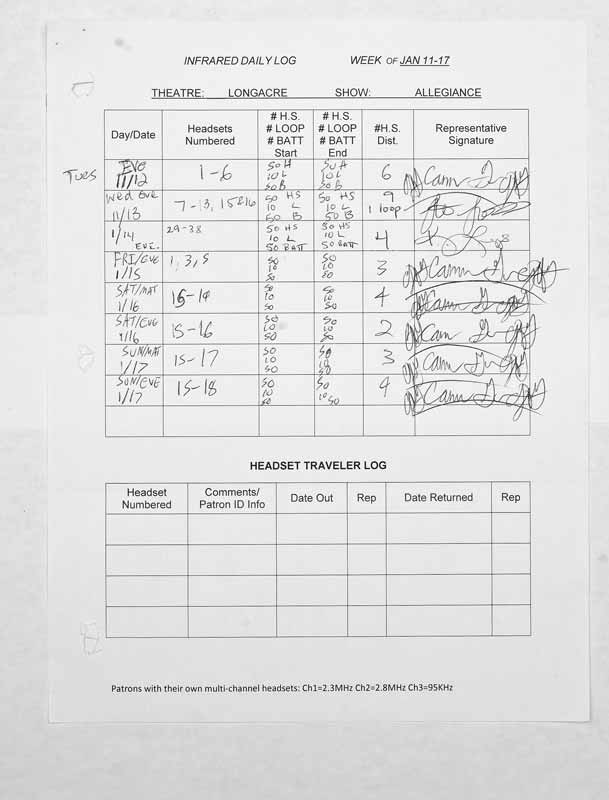 INFRARED DAILY LOG WEEK OF JAN 11-17
THEATRE: LONGACRE SHOW: ALLEGIANCE
Day/Date Headsets Numbered # H.S. # LOOP # BATT Start # H.S. # LOOP # BATT End #H.S. Dist. Representative Signature
Tues EVE 11/12 1-6 50 H 10 L 50 B 50 H 10 L 50 B 6
Wed EVE 11/13 7-13, 15&16 50 HS 10 L 50 B 50 HS 10 L 50 B 9 1 loop
1/14 EVE. 29-38 50 HS 10 L 50 BATT 50 HS 10 L 50 BATT 4
FRI/EVE 1/15 1, 3, 5 50 10 50 50 10 50 3
SAT/MAT 1/16 50 10 50 50 10 50 4
SAT/EVE 1/16 15-16 50 10 50 50 10 50 2
SUN/MAT 1/17 15-17 50 10 50 50 10 50 3
SUN/EVE 1/17 15-18 50 10 50 50 10 50 4
HEADSET TRAVELER LOG
Headset Numbered Comments/ Patron ID Info Date Out Rep Date Returned Rep
Patrons with their own multi-channel headsets: Ch1=2.3MHz Ch2=2.8MHz Ch3=95KHz